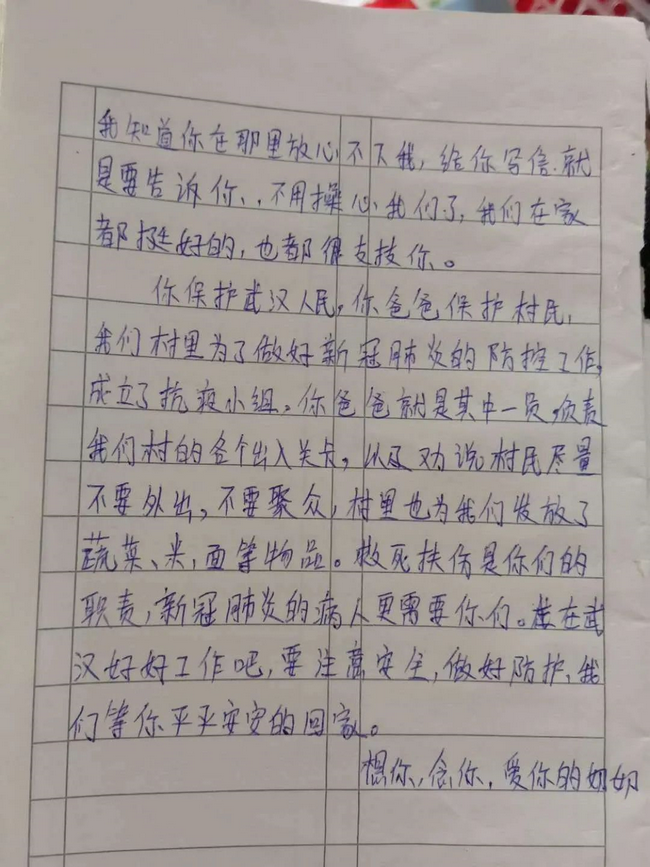 我知道你在那里放心不下我，给你写信.就
是要告诉你、,不用操心我们了，我们在家
都挺好的，也都很支技你。
你保护武汉人民，你爸爸保护村民，
我们村里为了做好新冠肺炎的防控工作，
成立了抗疫小组。你爸爸就是其中一员，负责
我们村的各个出入关卡，以及劝说村民尽量
不要外出，不要聚众，村里也为我们发放了
蔬菜、米，面等物品。救死扶伤是你们的
职责，新冠肺炎的病人更需要你们。在武
汉好好工作吧，要注意安全，做好防护、我
们等你平平安安的回家。
想你，念你，爱你的奶奶